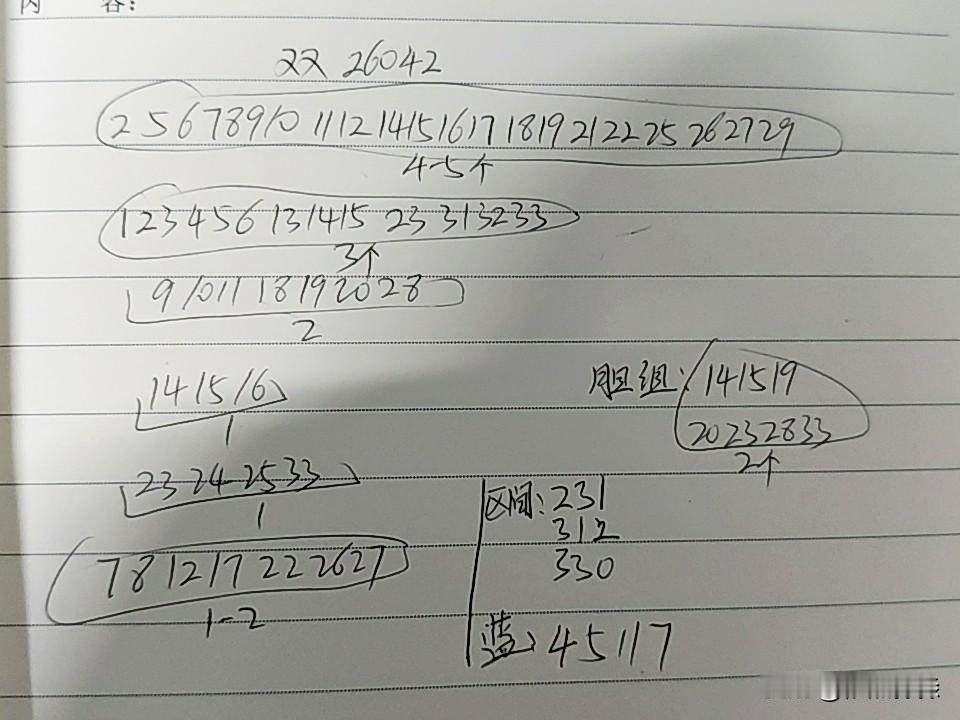 内 容：
双 26042
2 5 6 7 8 9 10 11 12 14 15 16 17 18 19 21 22 25 26 27 29
4-5个
1 2 3 4 5 6 13 14 15 23 31 32 33
3个
9 10 11 18 19 20 28
2
14 15 16
1
23 24 25 33
1
7 8 12 17 22 26 27
1-2
胆组: 14 15 19
20 23 28 33
2个
区间: 231
312
330
蓝: 4 5 11 7